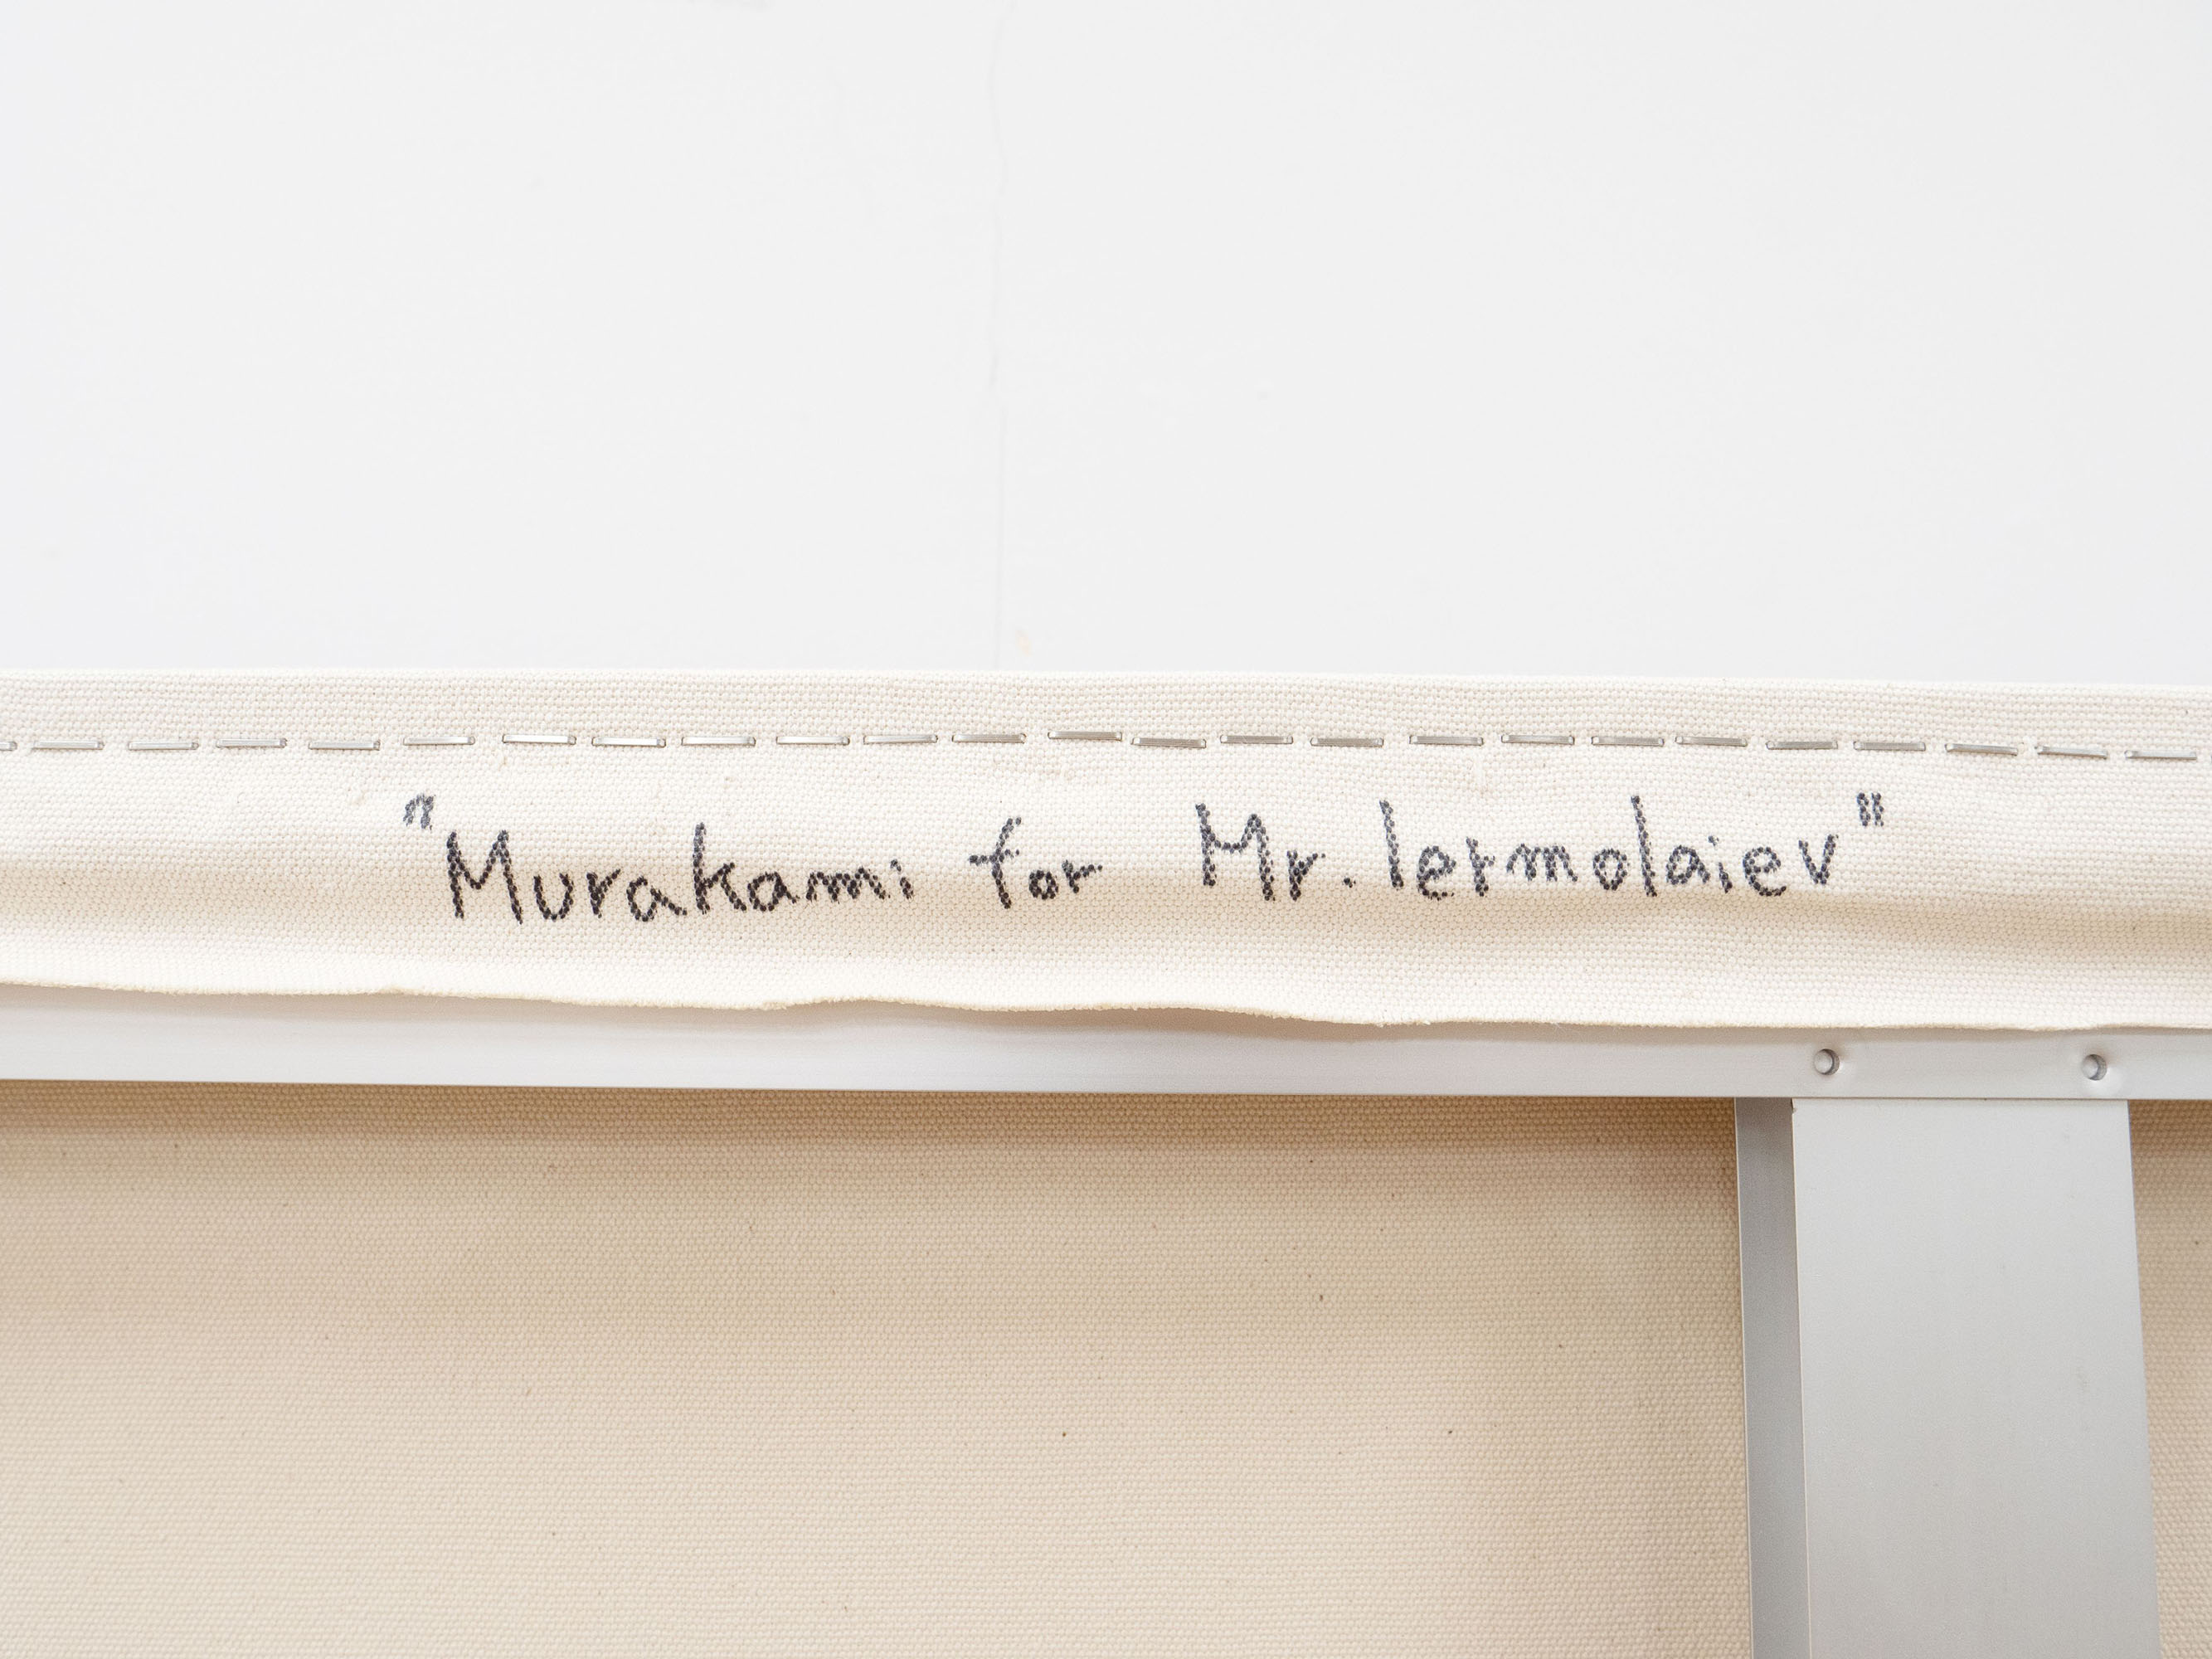 "Murakami for Mr. Iermolaiev"